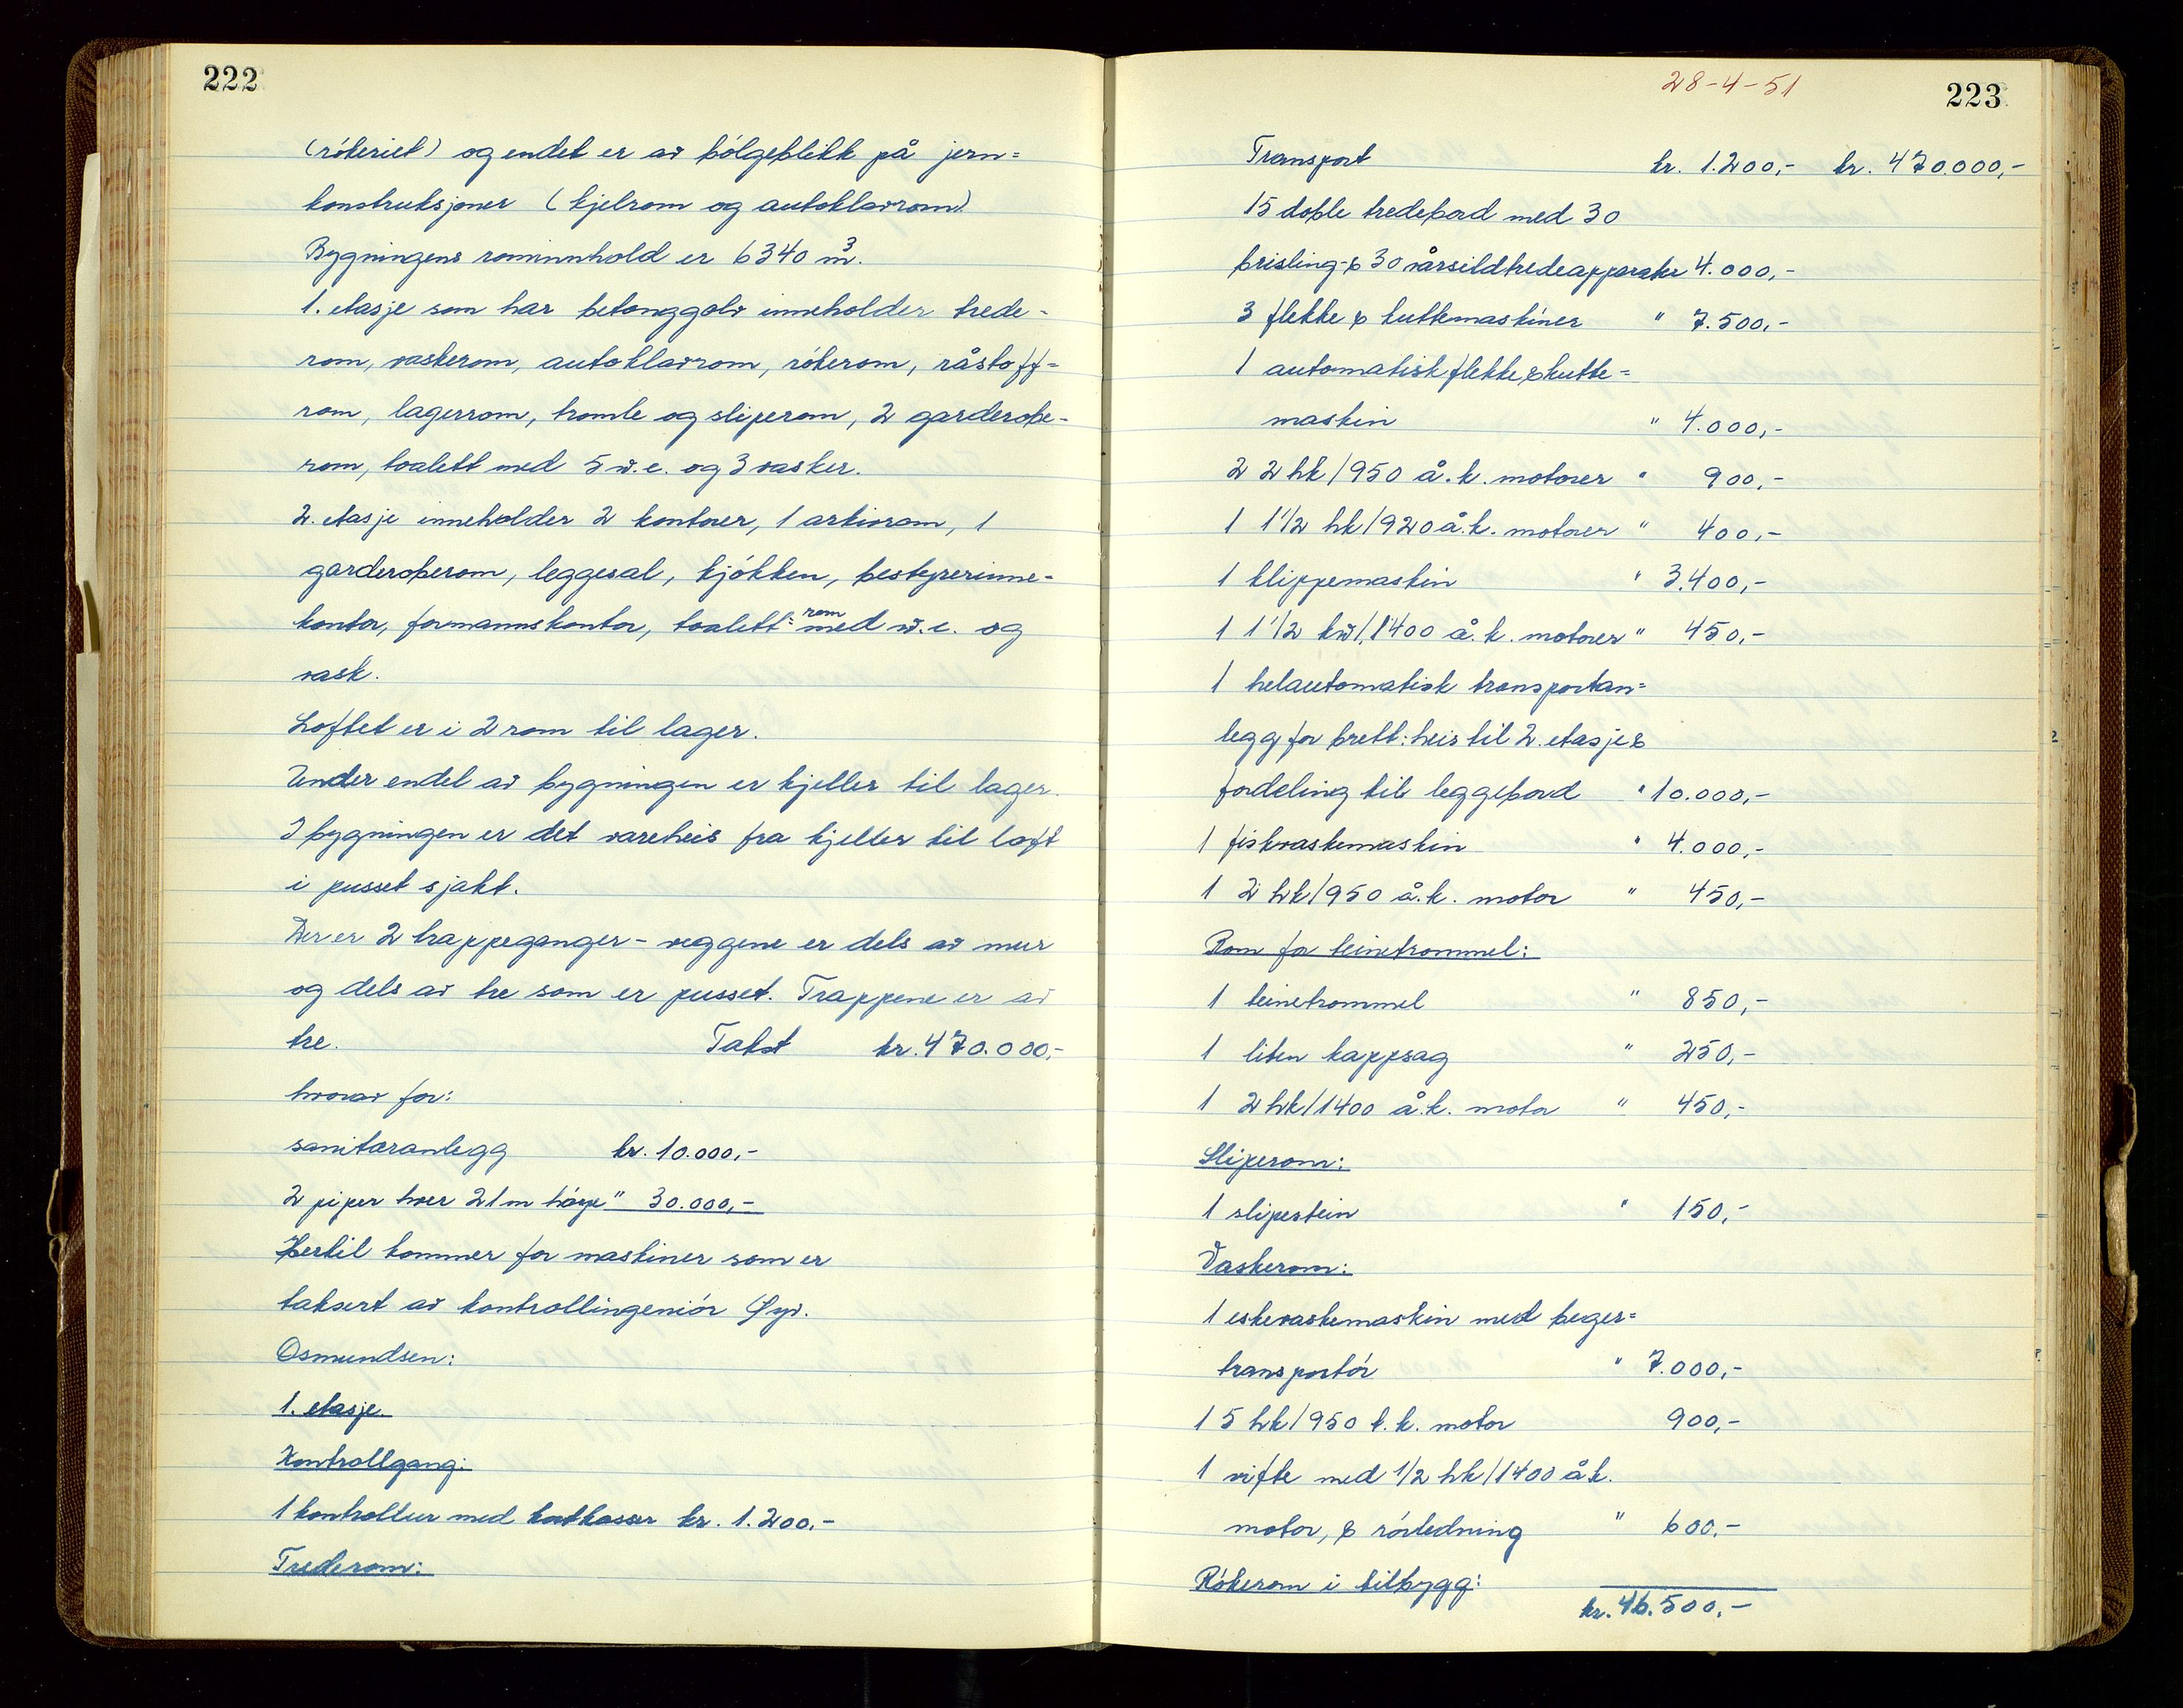 222
(røkeriet) og endet er av bølgeblikk på jern=
konstruksjoner (kjelrom og autoklavrom).
Bygningens rominnhold er 6340 m³.
1. etasje som har betonggolv inneholder trede-
rom, vaskerom, autoklavrom, røkerom, råstoff=
rom, lagerrom, tromle og sliperom, 2 garderobe-
rom, toalett med 5 w.c. og 3 vasker.
2. etasje inneholder 2 kontorer, 1 arkivrom, 1
garderoberom, leggesal, kjøkken, bestyrerinne-
kontor, formannskontor, toalett=rom med w.c. og
vask.
Loftet er i 2 rom til lager.
Under endel av bygningen er kjeller til lager.
I bygningen er det vareheis fra kjeller til loft
i pusset sjakt.
Der er 2 trappeganger - veggene er dels av mur
og dels av tre som er pusset. Trappene er av
tre. Takst kr. 470.000,-
hvorav for:
sanitæranlegg kr. 10.000,-
2 piper hver 21 m høye " 30.000,-
Hertil kommer for maskiner som er
taksert av kontrollingeniør Øyv.
Osmundsen:
1. etasje.
Kontrollgang:
1 kontrollur med kortkasser kr. 1.200,-
Trederom:
28-4-51
223
Transport kr. 1.200,- kr. 470.000,-
15 doble tredebord med 30
brisling- & 30 vårsildtredeapparater 4.000,-
3 flekke & kuttemaskiner " 7.500,-
1 automatisk flekke & kutte=
maskin " 4.000,-
2 2 hk/950 å.k. motorer " 900,-
1 1½ hk/920 å.k. motorer " 400,-
1 klippemaskin " 3.400,-
1 1½ kw/1400 å.k. motorer " 450,-
1 helautomatisk transportan=
legg for brett: heis til 2. etasje &
fordeling til leggebord " 10.000,-
1 fiskvaskemaskin " 4.000,-
1 2 hk/950 å.k. motor " 450,-
Rom for teinetrommel:
1 teinetrommel " 850,-
1 liten kappsag " 250,-
1 2 hk/1400 å.k. motor " 450,-
Sliperom:
1 slipestein " 150,-
Vaskerom:
1 eskevaskemaskin med beger=
transportør " 7.000,-
1 5 hk/950 t.k. motor 900,-
1 vifte med 1/2 hk/1400 å.k.
motor, & rørledning " 600,-
Røkerom i tilbygg:
kr. 46.500,-